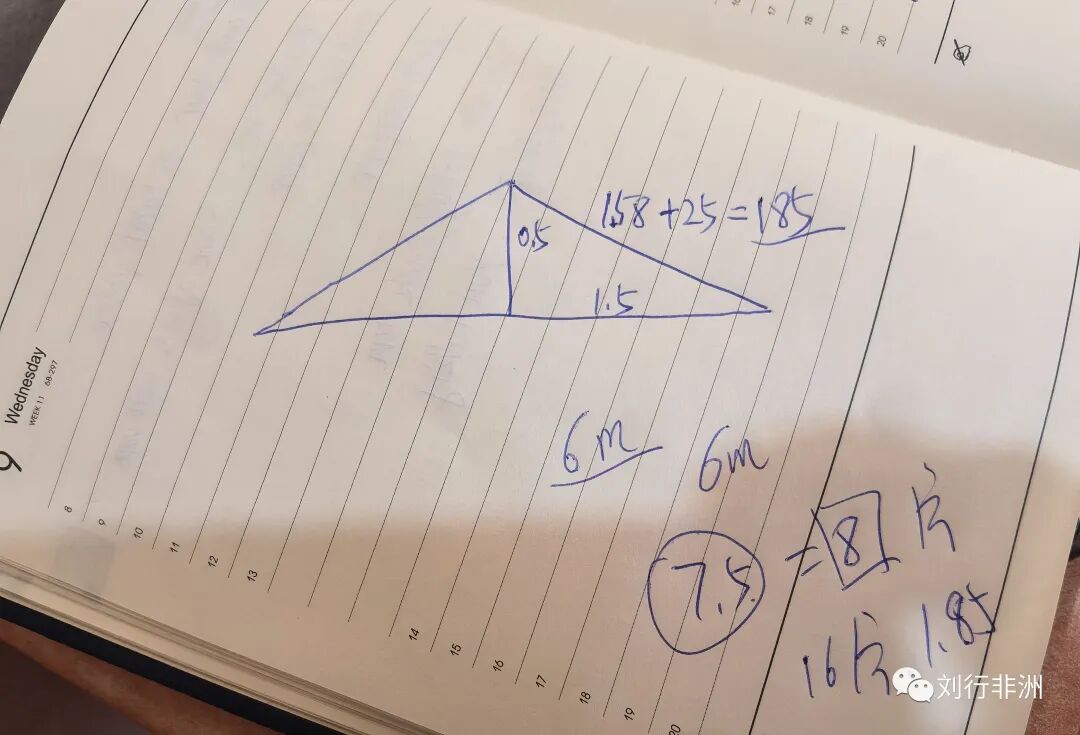 16
17
18
19
20
1.58+25=185
0.5
1.5
6m 6m
7.5 = 8 片
16片 1.85
9 Wednesday
WEEK 11 68-297
8
9
10
11
12
13
14
15
16
17
18
19
20
刘行非洲